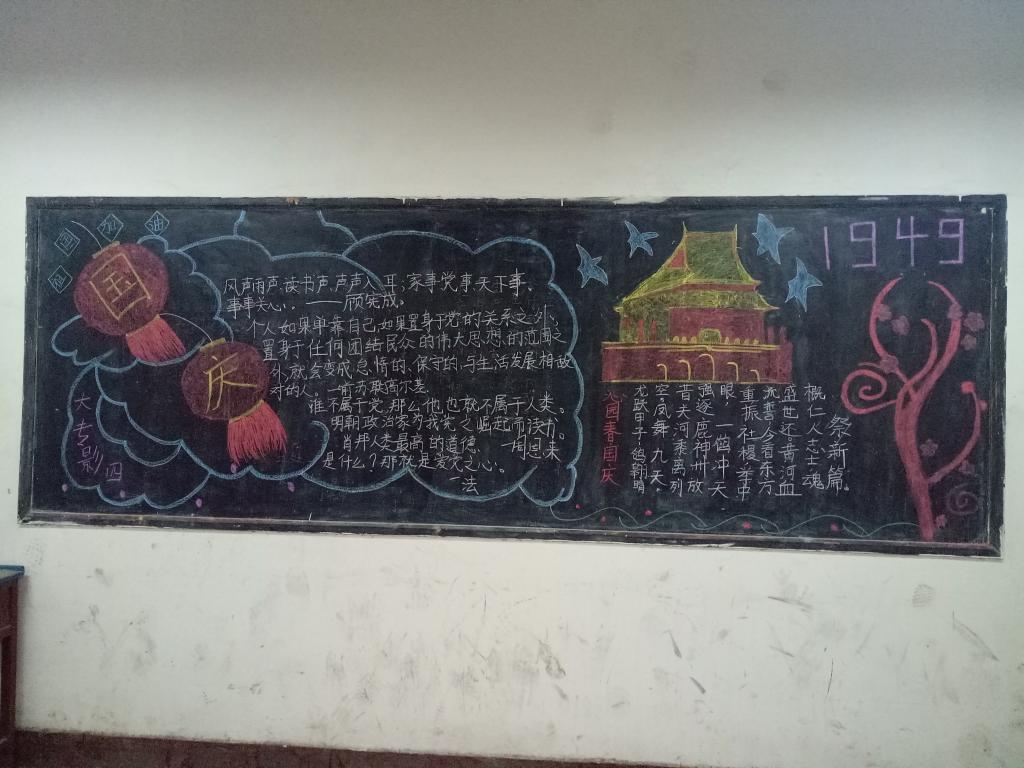 祖国加油
国
庆
风声雨声读书声,声声入耳;家事党事天下事、
事事关心. ——顾宪成。
个人如果单靠自己,如果置身于党的关系之外、
置身于任何团结民众的伟大思想的范围之
外,就会变成怠惰的、保守的、与生活发展相敌
对的人。—前苏联高尔基
谁不属于党,那么,他也就不属于人类。
明朝政治家为我党之崛起而读书。
人类最高的道德 —周恩来
是什么?那就是爱党之心。
—法
大专影四
1949
祭新篇。
概仁人志士魂
盛世还 黄河血
今看东方
重振社稷 华中
眼,一个冲天
逐鹿神州放
昔夫河黍离列
空,凤舞九天。
龙跃甲子,鸽翱晴
春国庆